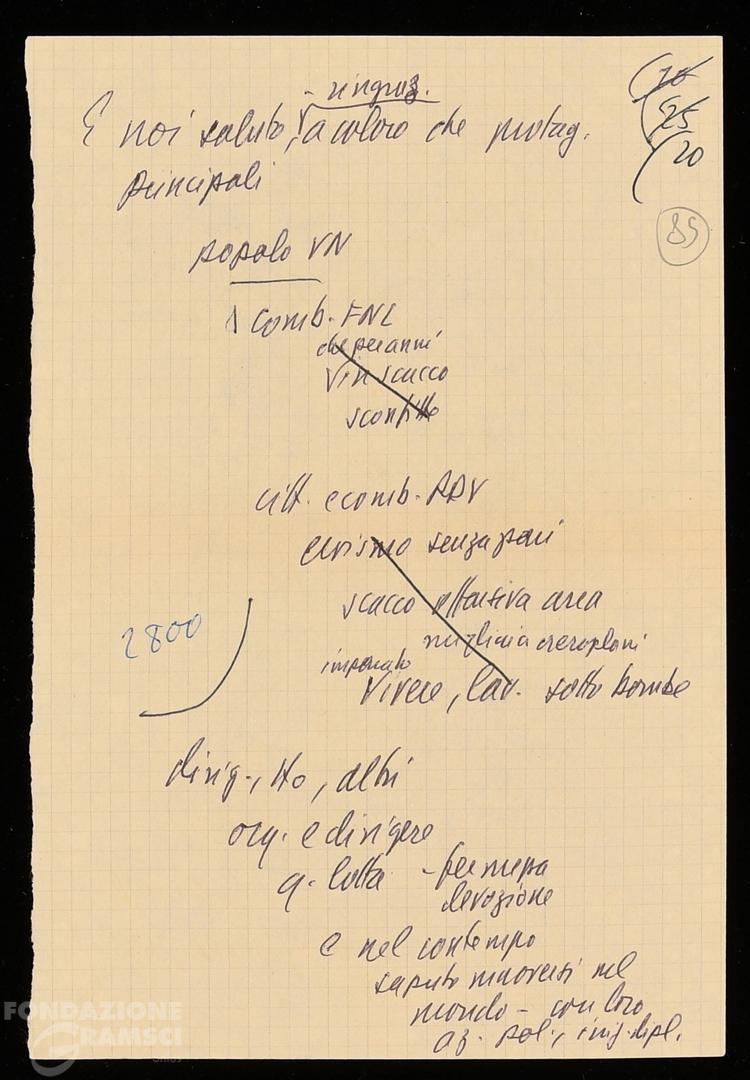 - ringraz.
E noi saluto, a coloro che protag.
principali
20
25
20
85
popolo VN
comb. FNL
che per anni
in scacco
sconfitto
citt. e comb. RDV
eroismo senza pari
scacco offensiva aerea
migliaia aeroplani
imparato
vivere, lav. sotto bombe
2800
dirig., Ho, altri
org. e dirigere
q. lotta - fermezza
devozione
e nel contempo
saputo muoversi nel
mondo - con loro
az. pol., iniz. dipl.
FONDAZIONE
GRAMSCI